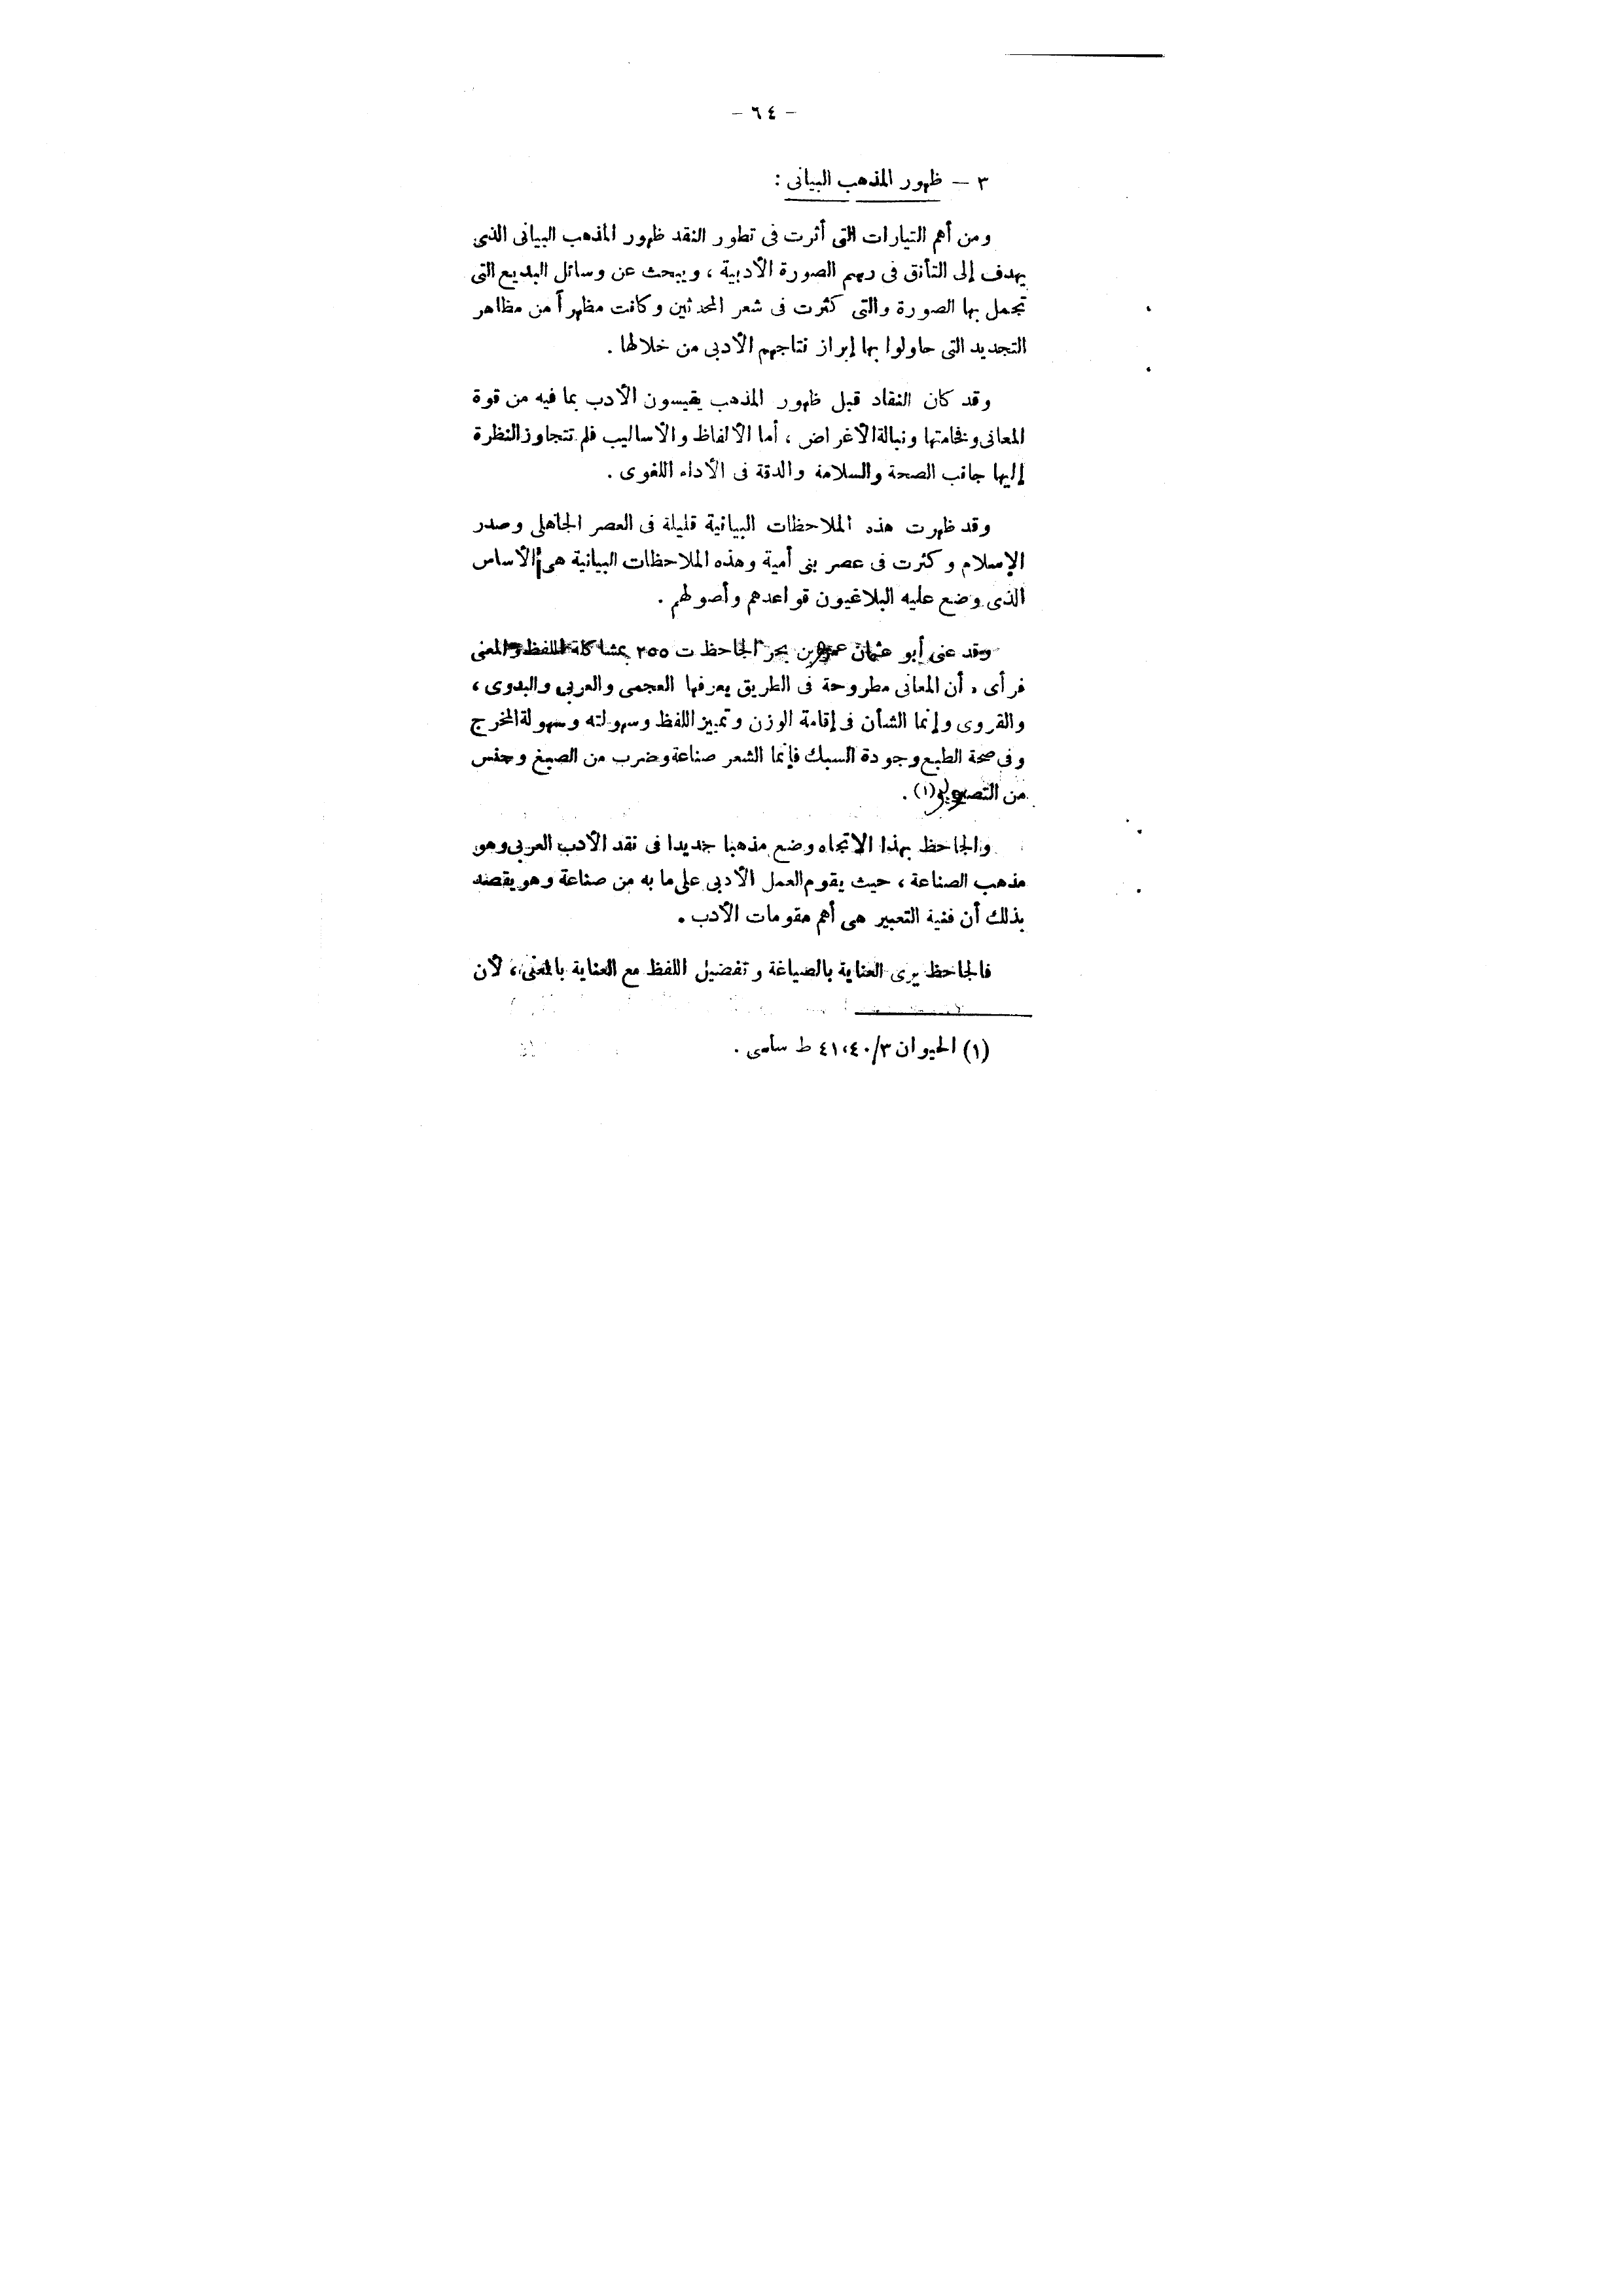 - ٦٤ -
٣ - ظهور المذهب البيانى :
ومن أهم التيارات التى أثرت فى تطور النقد ظهور المذهب البيانى الذى
يهدف إلى التأنق فى رسم الصورة الأدبية ، ويبحث عن وسائل البديع التى
تجمل بها الصورة والتى كثرت فى شعر المحدثين وكانت مظهراً من مظاهر
التجديد التى حاولوا بها إبراز نتاجهم الأدبى من خلالها .
وقد كان النقاد قبل ظهور المذهب يقيسون الأدب بما فيه من قوة
المعانى وفخامتها ونبالة الأغراض ، أما الألفاظ والأساليب فلم تتجاوز النظرة
إليها جانب الصحة والسلامة والدقة فى الأداء اللغوى .
وقد ظهرت هذه الملاحظات البيانية قليلة فى العصر الجاهلى وصدر
الإسلام وكثرت فى عصر بنى أمية وهذه الملاحظات البيانية هى الأساس
الذى وضع عليه البلاغيون قواعدهم وأصولهم .
وقد عنى أبو عثمان عمرو بن بحر الجاحظ ت ٢٥٥ بمشاكلة اللفظ والمعنى
فرأى « أن المعانى مطروحة فى الطريق يعرفها العجمى والعربى والبدوى ،
والقروى وإنما الشأن فى إقامة الوزن وتمييز اللفظ وسهولته وسهولة المخرج
وفى صحة الطبع وجودة السبك فإنما الشعر صناعة وضرب من الصبغ وجنس
من التصوير (١) .
والجاحظ بهذا الاتجاه وضع مذهبا جديدا فى نقد الأدب العربى وهو
مذهب الصناعة ، حيث يقوم العمل الأدبى على ما به من صناعة وهو يقصد
بذلك أن فنية التعبير هى أهم مقومات الأدب .
فالجاحظ يرى العناية بالصياغة وتفضيل اللفظ مع العناية بالمعنى ، لأن
(١) الحيوان ٤١،٤٠/٣ ط ساسى .